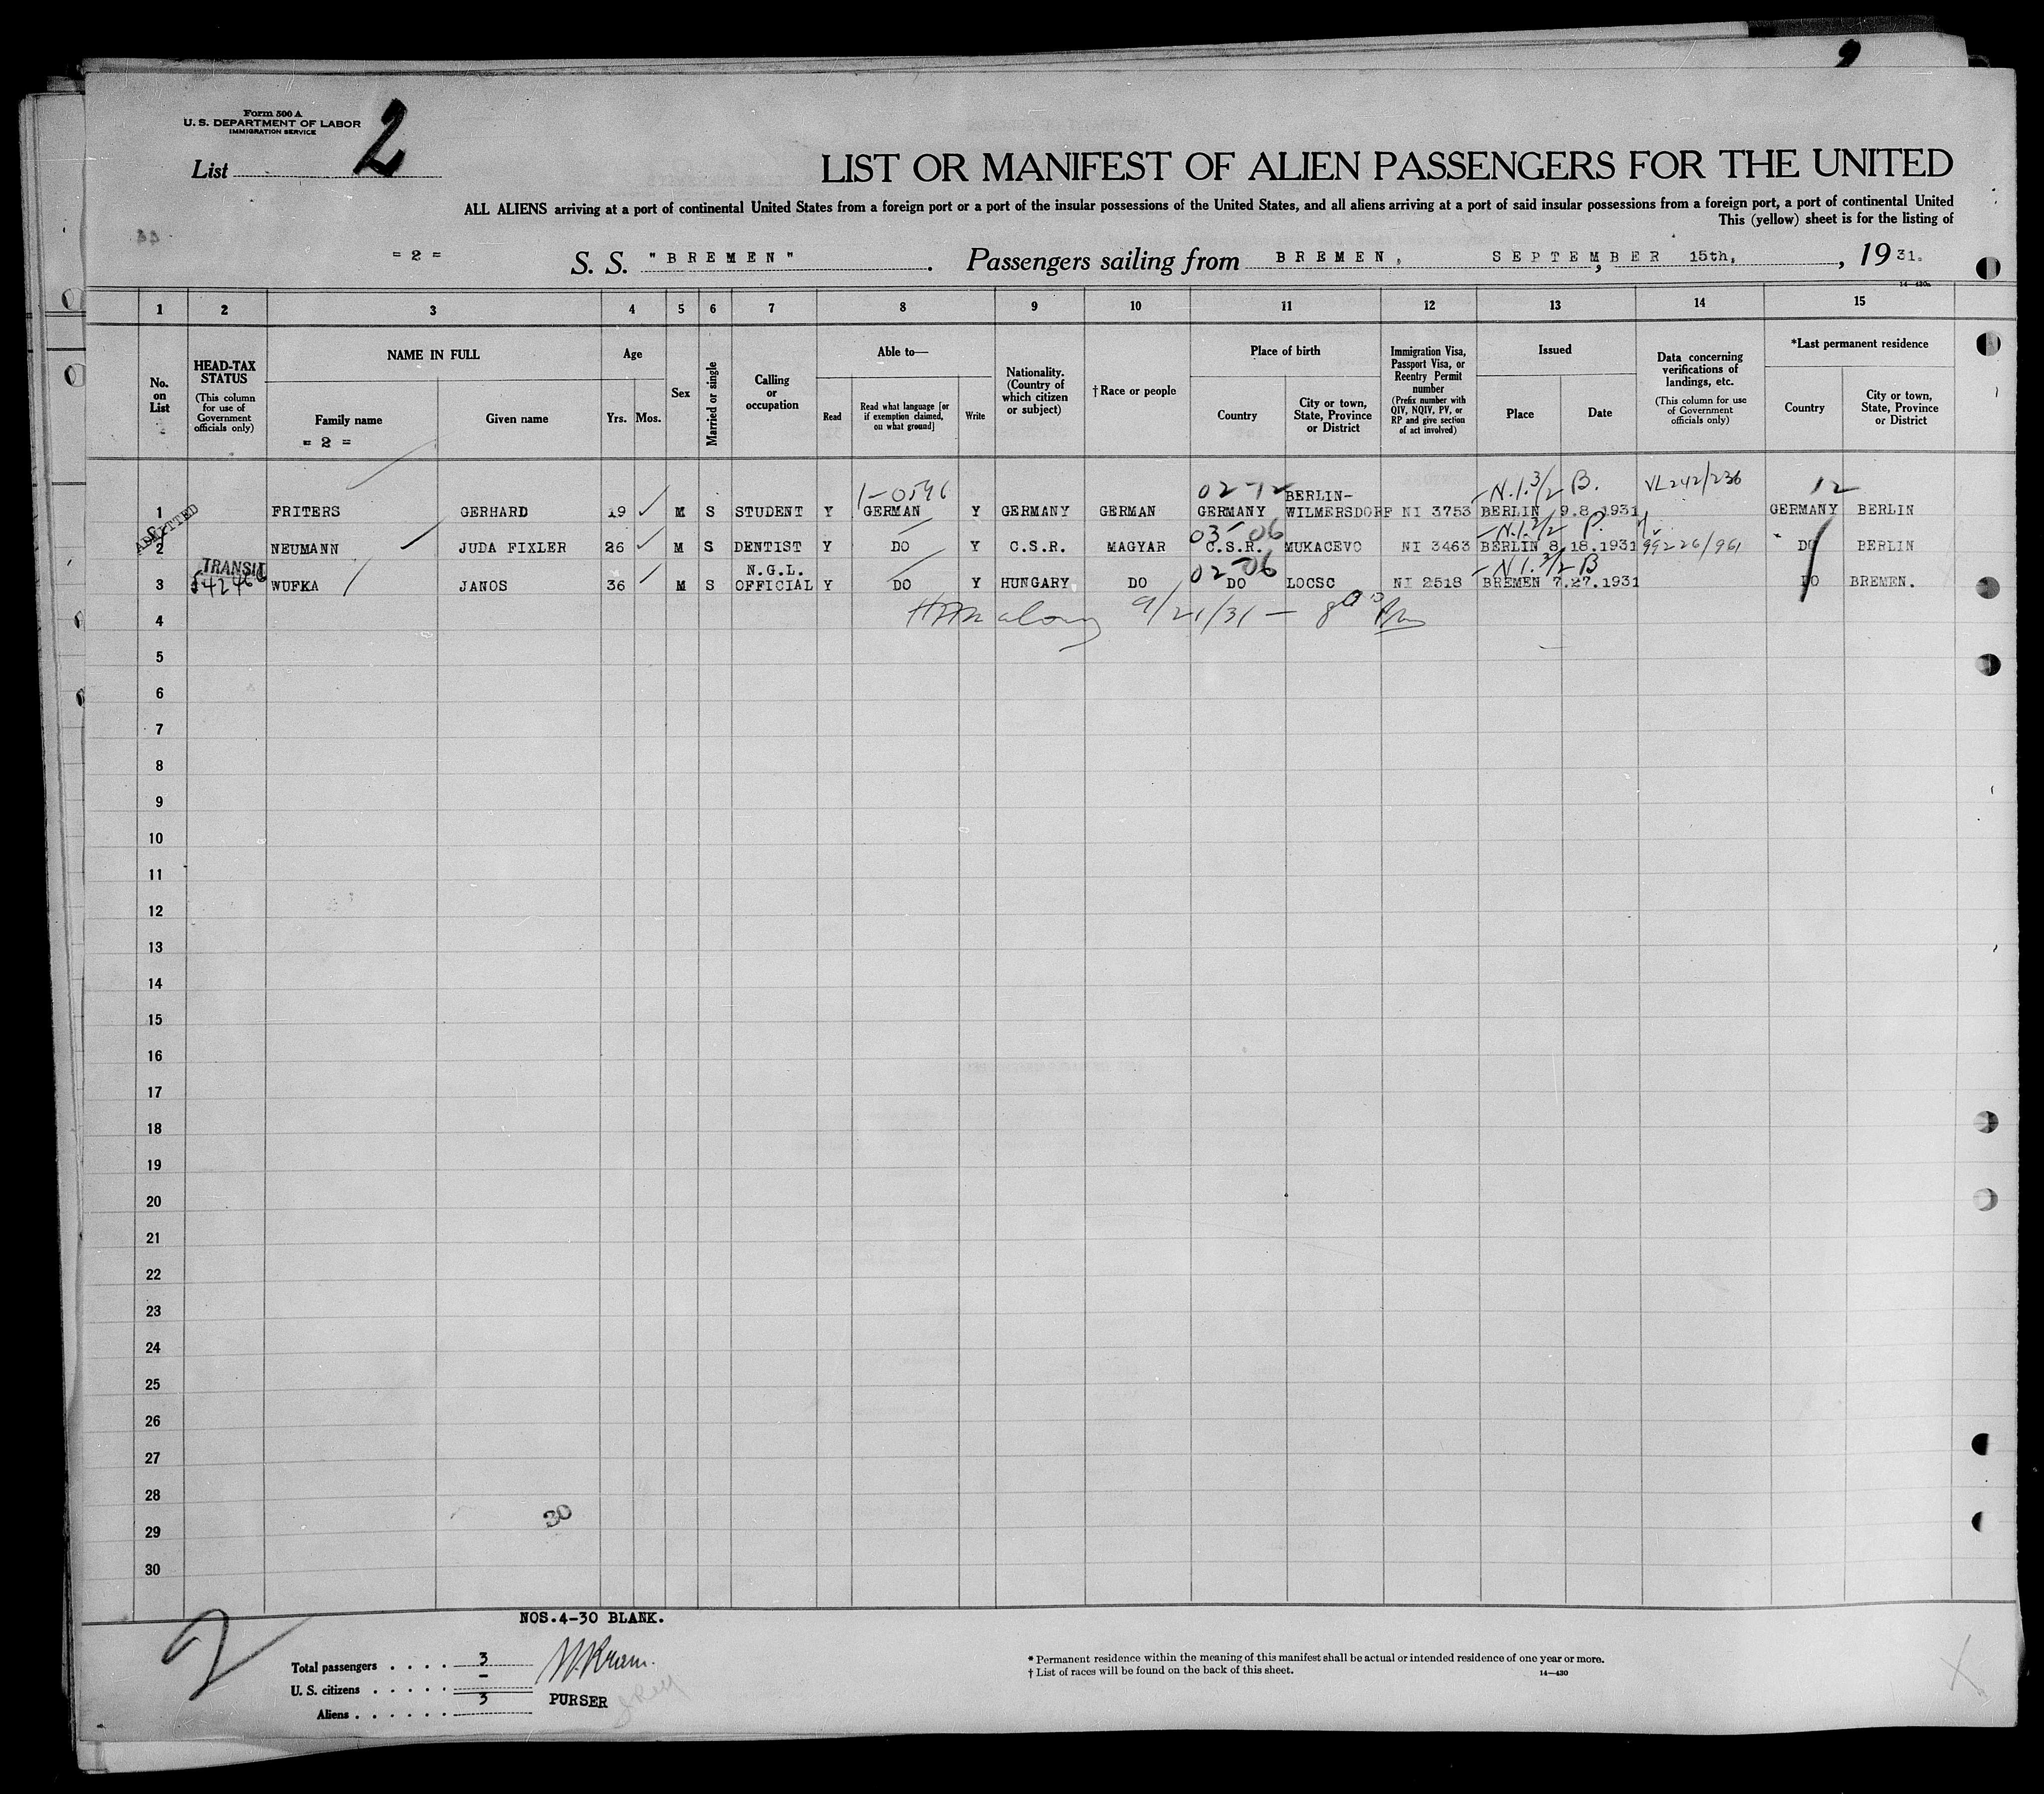 Form 500 A
U. S. DEPARTMENT OF LABOR
IMMIGRATION SERVICE
List 2
LIST OR MANIFEST OF ALIEN PASSENGERS FOR THE UNITED
ALL ALIENS arriving at a port of continental United States from a foreign port or a port of the insular possessions of the United States, and all aliens arriving at a port of said insular possessions from a foreign port, a port of continental United
This (yellow) sheet is for the listing of
= 2 = S. S. "BREMEN". Passengers sailing from BREMEN, SEPTEMBER 15th, , 1931.
14—430a
1 2 3 4 5 6 7 8 9 10 11 12 13 14 15
No. on List
HEAD-TAX STATUS (This column for use of Government officials only)
NAME IN FULL
Family name
= 2 =
Given name
Age
Yrs. Mos.
Sex
Married or single
Calling or occupation
Able to—
Read
Read what language [or if exemption claimed, on what ground]
Write
Nationality. (Country of which citizen or subject)
†Race or people
Place of birth
Country
City or town, State, Province or District
Immigration Visa, Passport Visa, or Reentry Permit number (Prefix number with QIV, NQIV, PV, or RP and give section of act involved)
Issued
Place
Date
Data concerning verifications of landings, etc. (This column for use of Government officials only)
*Last permanent residence
Country
City or town, State, Province or District
1-0596 02-12 N.1.3/2 B. VL242/236 12
1 FRITERS GERHARD 19 M S STUDENT Y GERMAN Y GERMANY GERMAN GERMANY BERLIN-WILMERSDORF NI 3753 BERLIN 9.8.1931 GERMANY BERLIN
ADMITTED 03-06 N.1.3/2 P.
2 NEUMANN JUDA FIXLER 26 M S DENTIST Y DO Y C.S.R. MAGYAR C.S.R. MUKACEVO NI 3463 BERLIN 8.18.1931 99226/961 DO BERLIN
TRANSIT 02-06 N1.3/2 B
3 542466 WUFKA JANOS 36 M S N.G.L. OFFICIAL Y DO Y HUNGARY DO DO LOCSC NI 2518 BREMEN 7.27.1931 DO BREMEN.
4 9/21/31 — 8 Pm
5
6
7
8
9
10
11
12
13
14
15
16
17
18
19
20
21
22
23
24
25
26
27
28
30
29
30
NOS.4-30 BLANK.
2
Total passengers . . . . 3
U. S. citizens . . . . . –
Aliens . . . . . . 3
PURSER
* Permanent residence within the meaning of this manifest shall be actual or intended residence of one year or more.
† List of races will be found on the back of this sheet.
14—430